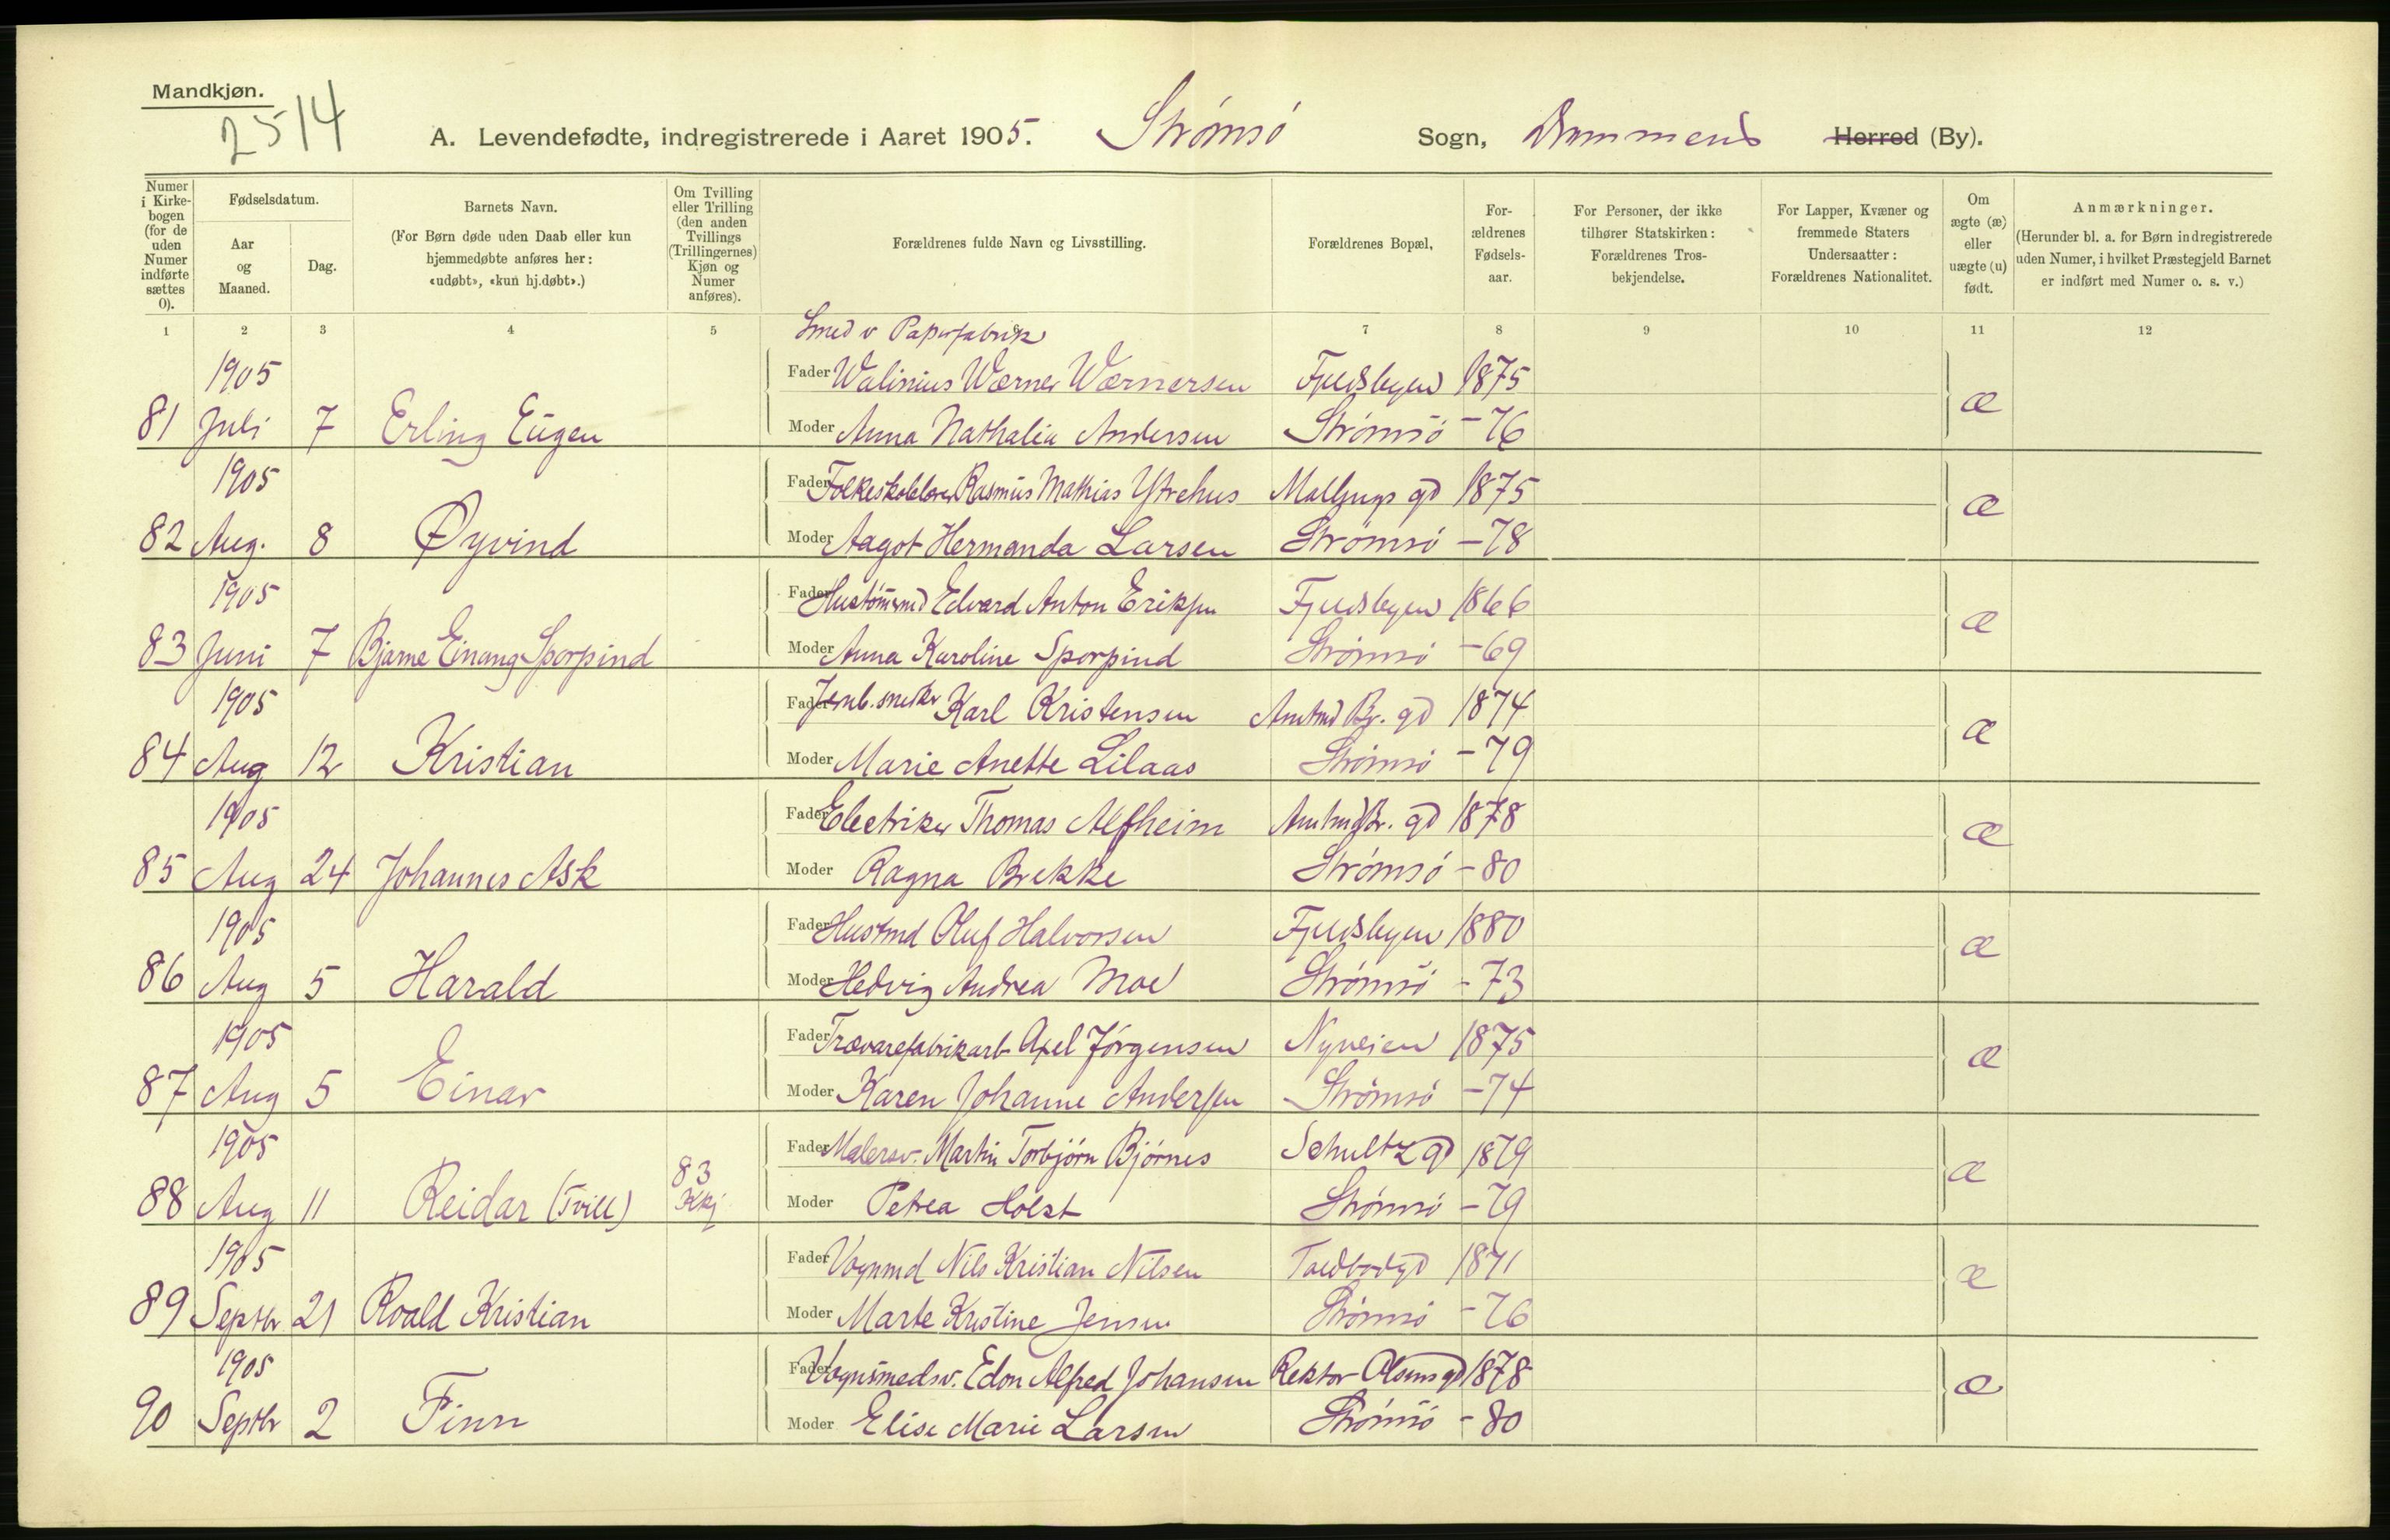 Mandkjøn.
2514
A. Levendefødte, indregistrerede i Aaret 1905. Strømsø Sogn, Drammens Herred (By).
Numer i Kirkebogen (for de uden Numer indførte sættes 0).
Fødselsdatum.
Aar og Maaned.
Dag.
Barnets Navn.
(For Børn døde uden Daab eller kun hjemmedøbte anføres her: «udøbt», «kun hj.døbt».)
Om Tvilling eller Trilling (den anden Tvillings (Trillingernes) Kjøn og Numer anføres).
Forældrenes fulde Navn og Livsstilling.
Forældrenes Bopæl,
Forældrenes Fødselsaar.
For Personer, der ikke tilhører Statskirken: Forældrenes Trosbekjendelse.
For Lapper, Kvæner og fremmede Staters Undersaatter: Forældrenes Nationalitet.
Om ægte (æ) eller uægte (u) født.
Anmærkninger.
(Herunder bl. a. for Børn indregistrerede uden Numer, i hvilket Præstegjeld Barnet er indført med Numer o. s. v.)
1 2 3 4 5 6 7 8 9 10 11 12
Smed v Papirfabrik
1905 Fader Walinius Werner Wernersen Fjeldsbyen 1875 æ
81 Juli 7 Erling Eugen Moder Anna Nathalia Andersen Strømsø -76
1905 Fader Folkeskolelærer Rasmus Mathias Ytrehus gd 1875 æ
82 Aug. 8 Øyvind Moder Aagot Hermanda Larsen Strømsø -78
1905 Fader Hustømmd Edvard Anton Eriksen Fjeldsbyen 1866 æ
83 Juni 7 Bjarne Einang Sporpind Moder Anna Karoline Sporpind Strømsø -69
1905 Fader Karl Kristensen Amtmd Br. gd 1874 æ
84 Aug 12 Kristian Moder Marie Anette Lilaas Strømsø -79
1905 Fader Electriker Thomas Alfheim Amtmd Br. gd 1878 æ
85 Aug 24 Johannes Ask Moder Ragna Brekke Strømsø -80
1905 Fader Hustmd Oluf Halvorsen Fjeldsbyen 1880 æ
86 Aug 5 Harald Moder Hedvig Andrea Moe Strømsø -73
1905 Fader Trævarefabrikarb Axel Jørgensen Nyveien 1875 æ
87 Aug 5 Einar Moder Karen Johanne Andersen Strømsø -74
1905 Fader Malersv. Martin Torbjørn Bjørnes Schultz gd 1879 æ
88 Aug 11 Reidar (Tvill) 83 Kkj Moder Petrea Holst Strømsø -79
1905 Fader Vognmd Nils Kristian Nilsen Toldbodgd 1871 æ
89 Septbr 21 Roald Kristian Moder Marte Kristine Jensen Strømsø -76
1905 Fader Vognsmedsv. Edon Alfred Johansen Rektor Olsens gd 1878 æ
90 Septbr 2 Finn Moder Elise Marie Larsen Strømsø -80